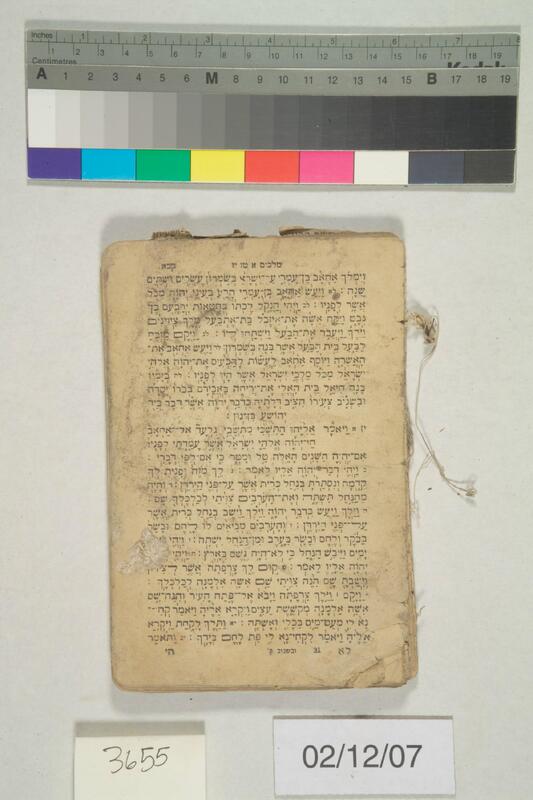 Inches 1 2 3 4 5 6 7 8
Centimetres 1 2 3 4 5 6 7 8 9 10 11 12 13 14 15 16 17 18 19
Kodak
A 1 2 3 4 5 6 M 8 9 10 11 12 13 14 15 B 17 18 19
מלכים א טז יז
וימלך אחאב בן־עמרי על־ישראל בשמרון עשרים ושתים
שנה׃ ויעש אחאב בן־עמרי הרע בעיני יהוה מכל
אשר לפניו׃ ויהי הנקל לכתו בחטאות ירבעם בן
נבט ויקח אשה את־איזבל בת־אתבעל מלך צידנים
וילך ויעבד את־הבעל וישתחו לו׃ ויקם מזבח
לבעל בית הבעל אשר בנה בשמרון׃ ויעש אחאב את־
האשרה ויוסף אחאב לעשות להכעיס את־יהוה אלהי
ישראל מכל מלכי ישראל אשר היו לפניו׃ בימיו
בנה חיאל בית האלי את־יריחה באבירם בכרו יסדה
ובשגיב צעירו הציב דלתיה כדבר יהוה אשר דבר ביד
יהושע בן־נון׃
יז ויאמר אליהו התשבי מתשבי גלעד אל־אחאב
חי־יהוה אלהי ישראל אשר עמדתי לפניו
אם־יהיה השנים האלה טל ומטר כי אם־לפי דברי׃
ויהי דבר־יהוה אליו לאמר׃ לך מזה ופנית לך
קדמה ונסתרת בנחל כרית אשר על־פני הירדן׃ והיה
מהנחל תשתה ואת־הערבים צויתי לכלכלך שם׃
וילך ויעש כדבר יהוה וילך וישב בנחל כרית אשר
על־פני הירדן׃ והערבים מביאים לו לחם ובשר
בבקר ולחם ובשר בערב ומן־הנחל ישתה׃ ויהי
ימים וייבש הנחל כי לא־היה גשם בארץ׃ ויהי
יהוה אליו לאמר׃ קום לך צרפתה אשר לצידון
וישבת שם הנה צויתי שם אשה אלמנה לכלכלך׃
ויקם׀ וילך צרפתה ויבא אל־פתח העיר והנה־שם
אשה אלמנה מקששת עצים ויקרא אליה ויאמר קחי־
נא לי מעט־מים בכלי ואשתה׃ ותלך לקחת ויקרא
אליה ויאמר לקחי־נא לי פת לחם בידך׃ ותאמר
לא 31 ובשגיב ק׳ חי
3655
02/12/07